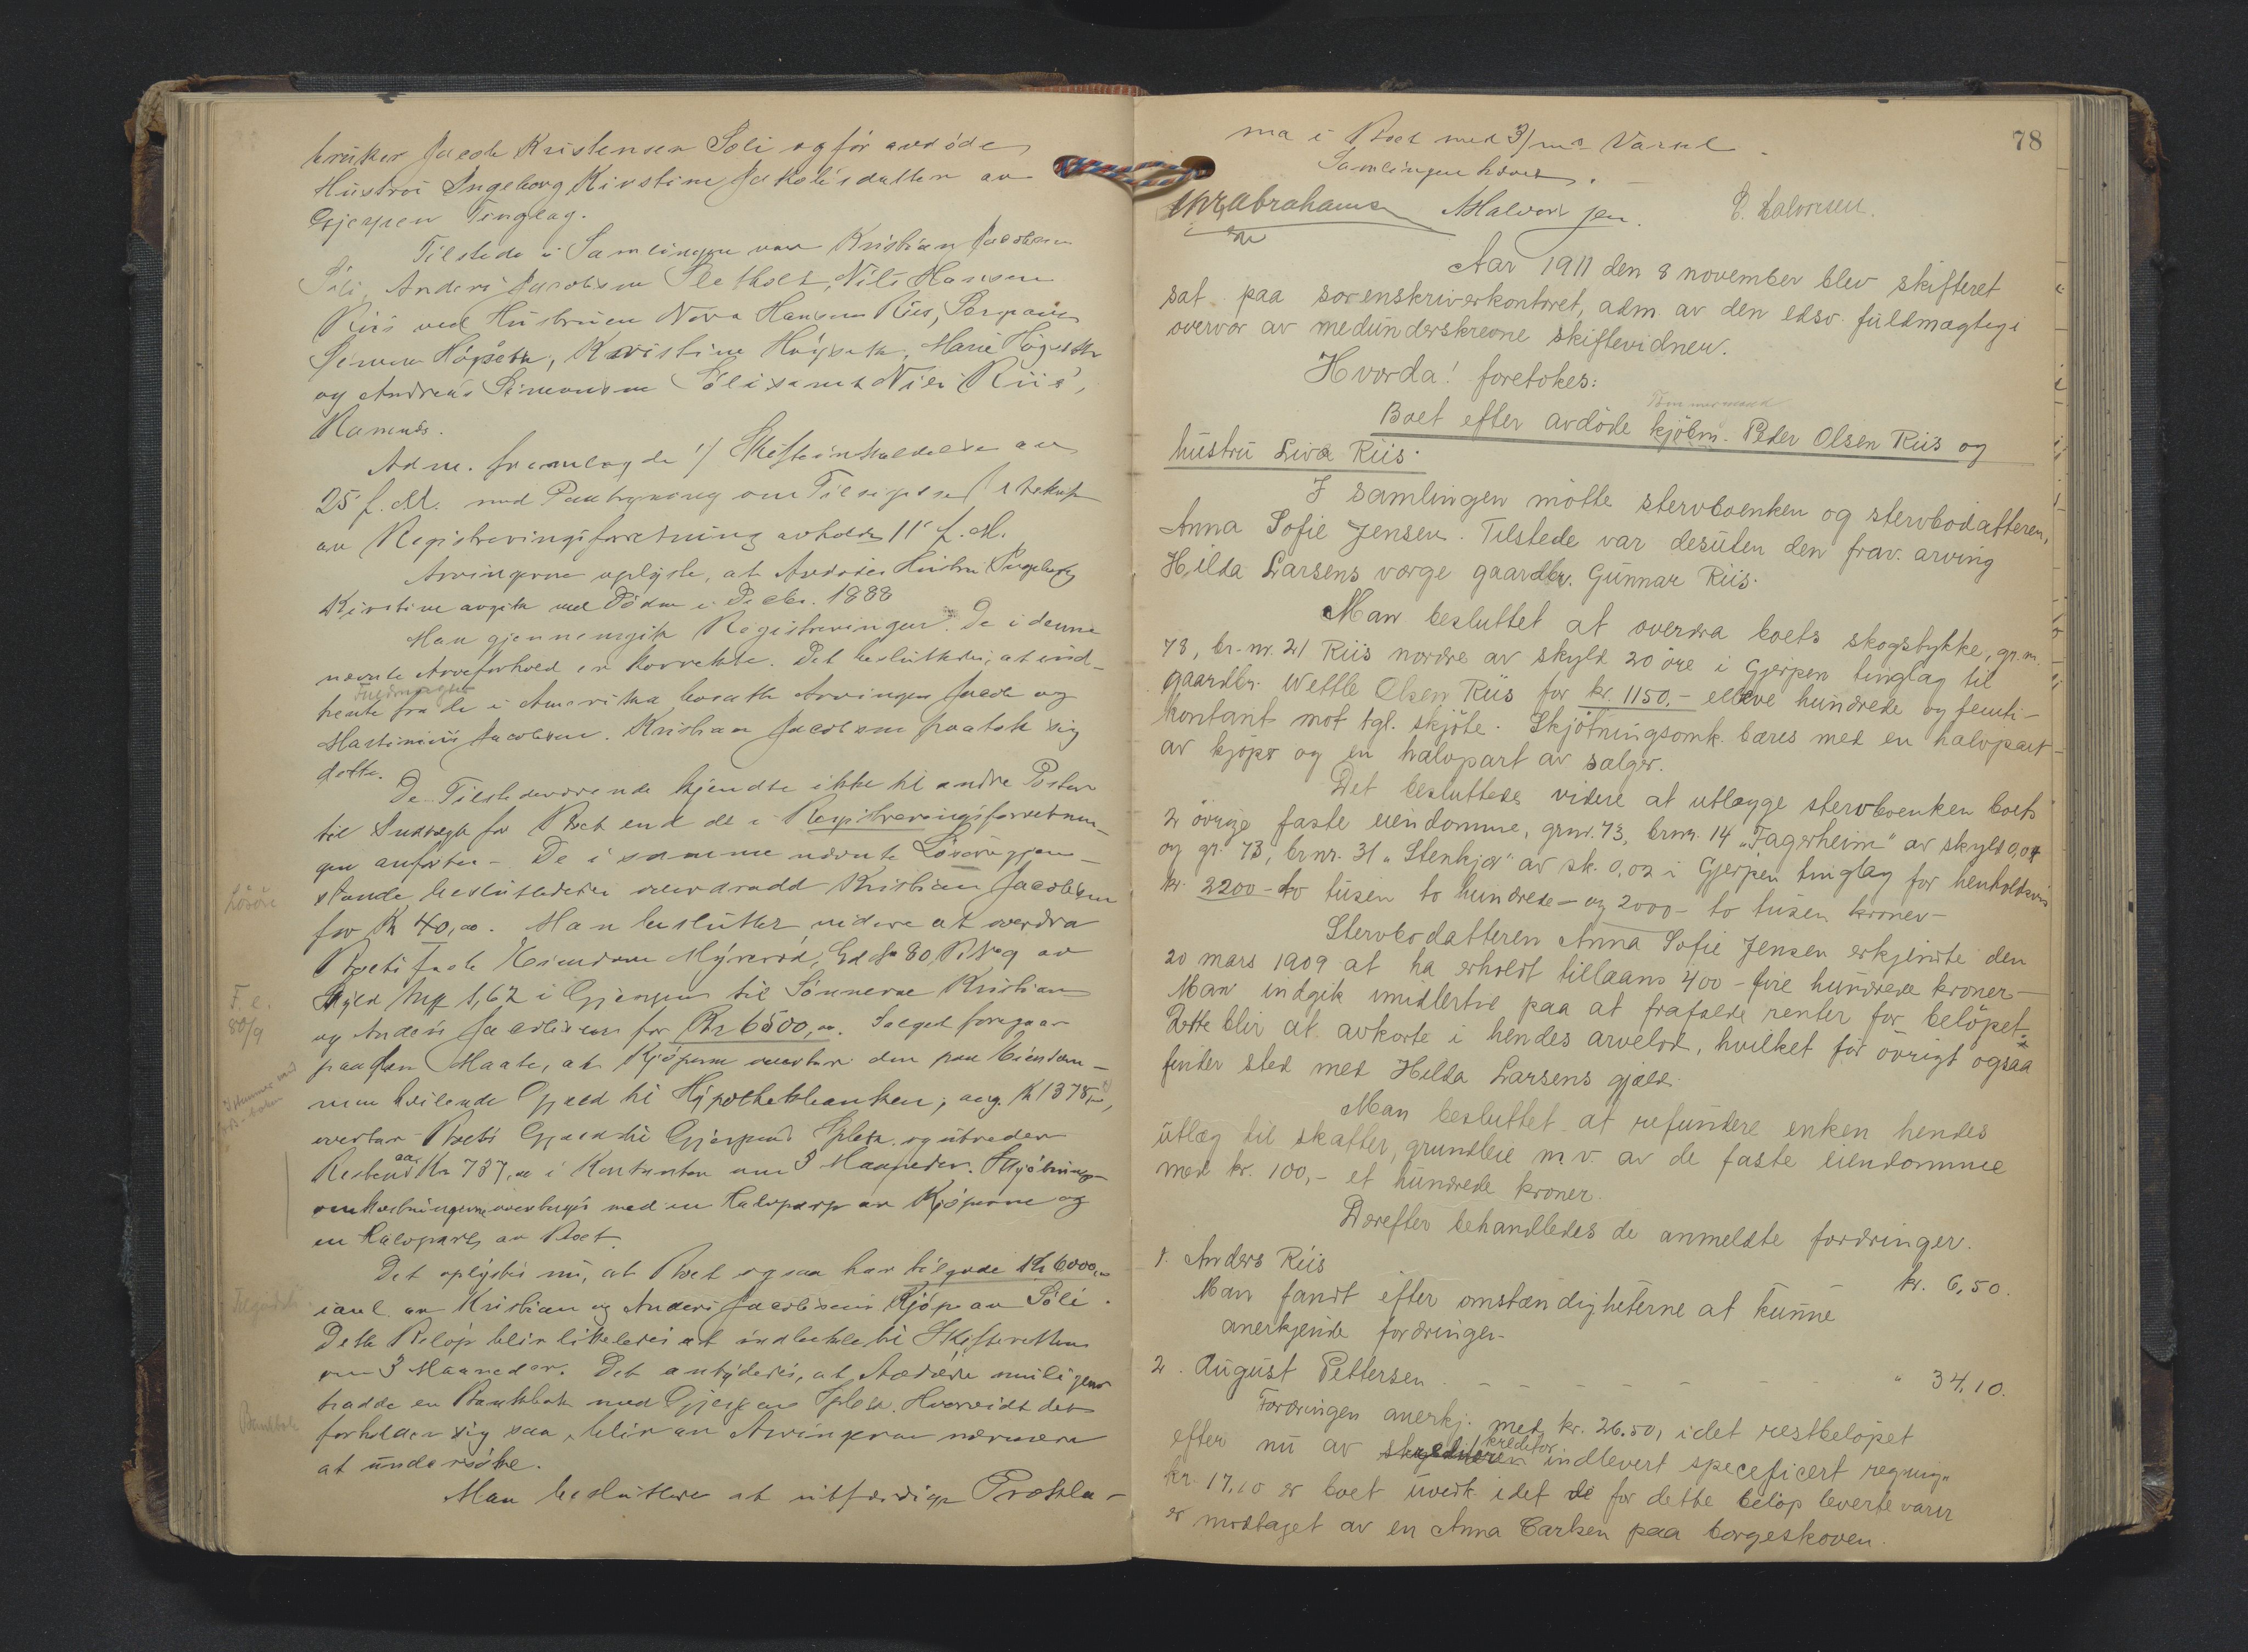 bruker Jacob Kristensen Soli og før avdøde
Hustru Ingeborg Kirstine Jakobsdatter av
Gjerpen Tinglag.
Tilstede i Samlingen var Kristian Jacobsen
Soli, Anders Jacobsen Sletholt, Nils Hansen
Riis ved Hustruen Nora Hansen Riis,
Simon Høgseth, Kristine Høgseth, Marie Høgseth
og Andreas Simonsen Soli samt Nils Riis,
Ramnes.
Adm. fremlagde 1/ Skifteinnkaldelse av
25 f. M. med Paategning om Tilsigelse
av Registreringsforretning avholdt 11 f. M.
Arvingerne oplyste, at Avdødes Hustru Ingeborg
Kirstine avgik ved Døden i Decbr. 1888
Man gjennemgik Registreringen. De i denne
nævnte Arveforhold er korrekte. Det besluttedes, at ind-
Fuldmagter
hente fra de i Amerika bosatte Arvinger Jacob og
Martinius Jacobsen. Kristian Jacobsen paatok sig
dette.
De Tilstedeværende kjendte ikke til andre Poster
til Indtægt for Boet end de i Registreringsforretnin-
gen anførte – De i samme nævnte Løsøregjen-
stande besluttedes overdradd Kristian Jacobsen
for Kr 40,00. Man beslutter videre at overdra
Boets faste Eiendom Myrerød, Gd No 80 Br No 9 av
Skyld Mrk 1,62 i Gjerpen til Sønnerne Kristian
og Anders Jacobsen for Kr 6500,00. Salget foregaar
paa den Maate, at Kjøperne overtar den paa Eiendom-
men hvilende Gjæld til Hypothekbanken, opg. Kr 1375,00,
overtar Boets Gjæld til Gjerpens Spbk. og utreder
Resten Kr 737,00 i Kontanter om 3 Maaneder. Skjøtnings-
omkostningerne overtages med en Halvpart av Kjøperne og
en Halvpart av Boet.
Det oplystes nu, at Boet ogsaa har tilgode Kr 6000,00
ianl. av Kristian og Anders Jacobsens Kjøp av Soli.
Dette Beløp blir likeledes at indbetale til Skifteretten
om 3 Maaneder. Det antydedes, at Avdøde muligens
hadde en Bankbok med Gjerpens Spbk. Hvorvidt det
forholder sig saa, blir av Arvingerne nærmere
at undersøke.
Man besluttede at utfærdige Prokla-
Løsøre
F. e.
80/9
Tilgodeh.
Bankbok
78
ma i Boet med 3/m Varsel
Samlingen hævet.
Chr Abrahamsen Halvor Jen. E. Halvorsen.
Aar 1911 den 8 november blev skifteret
sat paa sorenskriverkontoret, adm. av den edsv. fuldmægtig i
overvær av medunderskrevne skiftevidner.
Hvorda! foretokes:
Tømmermand
Boet efter avdøde kjøbm. Peder Olsen Riis og
hustru Liva Riis.
I samlingen møtte stervboenken og stervbodatteren,
Anna Sofie Jensen. Tilstede var desuten den frav. arving
Hilda Larsens værge gaardbr. Gunnar Riis.
Man besluttet at overdra boets skogstykke, gr.nr.
73, br.-nr. 21 Riis nordre av skyld 20 øre i Gjerpen tinglag til
gaardbr. Wettle Olsen Riis for kr. 1150,- elleve hundrede og femti-
kontant mot tgl. skjøte. Skjøtningsomk. bæres med en halvpart-
av kjøper og en halvpart av sælger.
Det besluttedes videre at utlægge stervboenken boets
2 øvrige faste eiendomme, grnr. 73, brnr. 14 „Fagerheim" av skyld 0,04
og gr. 73, brnr. 31 „Stenkjær" av sk. 0,02 i Gjerpen tinglag for henholdsvis
kr. 2200 - to tusen to hundrede - og 2000 - to tusen kroner -
Stervbodatteren Anna Sofie Jensen erkjendte den
20 mars 1909 at ha erholdt tillaans 400 - fire hundrede kroner -
Man indgik imidlertid paa at frafalde renter for beløpet.
Dette blir at avkorte i hendes arvelod, hvilket for øvrigt ogsaa
finder sted med Hilda Larsens gjæld.
Man besluttet at refundere enken hendes
utlæg til skatter, grundleie m.v. av de faste eiendomme
med kr. 100,- et hundrede kroner.
Derefter behandledes de anmeldte fordringer.
1. Anders Riis kr. 6,50.
Man fandt efter omstændigheterne at kunne
anerkjende fordringen-
2. August Pettersen - - - - - - „ 34,10.
Fordringen anerkj. med kr. 26.50, idet restbeløpet
kreditor
efter nu av indlevert specificert regning
kr. 17,10 er boet uvedk. idet de for dette beløp leverte varer
er mottaget av en Anna Carlsen paa borgeskoven.